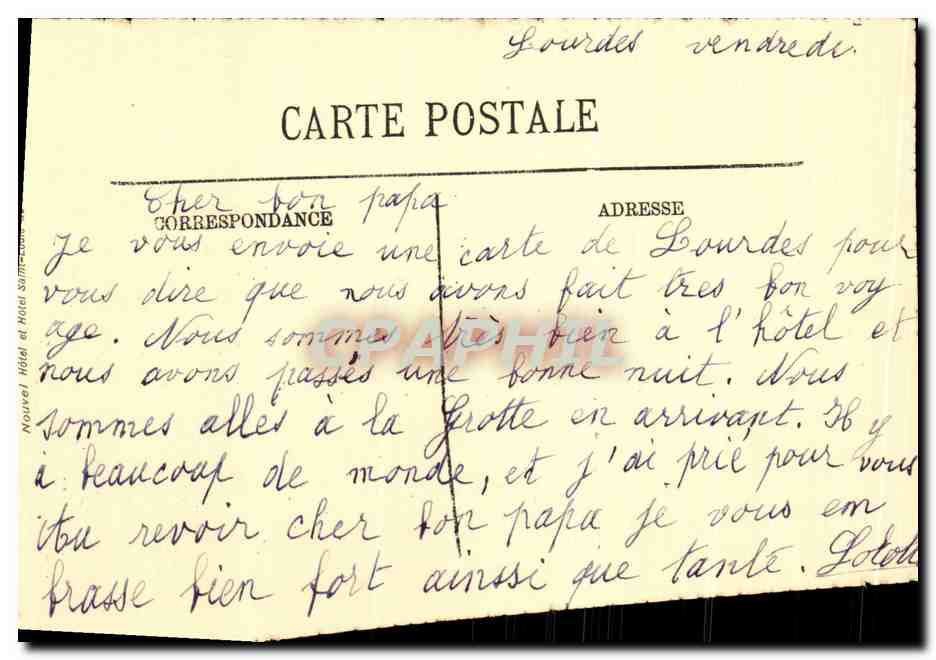 Lourdes vendredi.
CARTE POSTALE
Cher bon papa
CORRESPONDANCE
ADRESSE
Je vous envoie une carte de Lourdes pour
vous dire que nous avons fait tres bon voy
age. Nous sommes très bien à l'hôtel et
CPAPHIL
nous avons passés une bonne nuit. Nous
sommes allés à la Grotte en arrivant. Il y
à beaucoup de monde, et j'ai prié pour vous
Au revoir cher bon papa je vous em
brasse bien fort ainssi que tante.
Nouvel Hôtel et Hôtel Saint-Louis